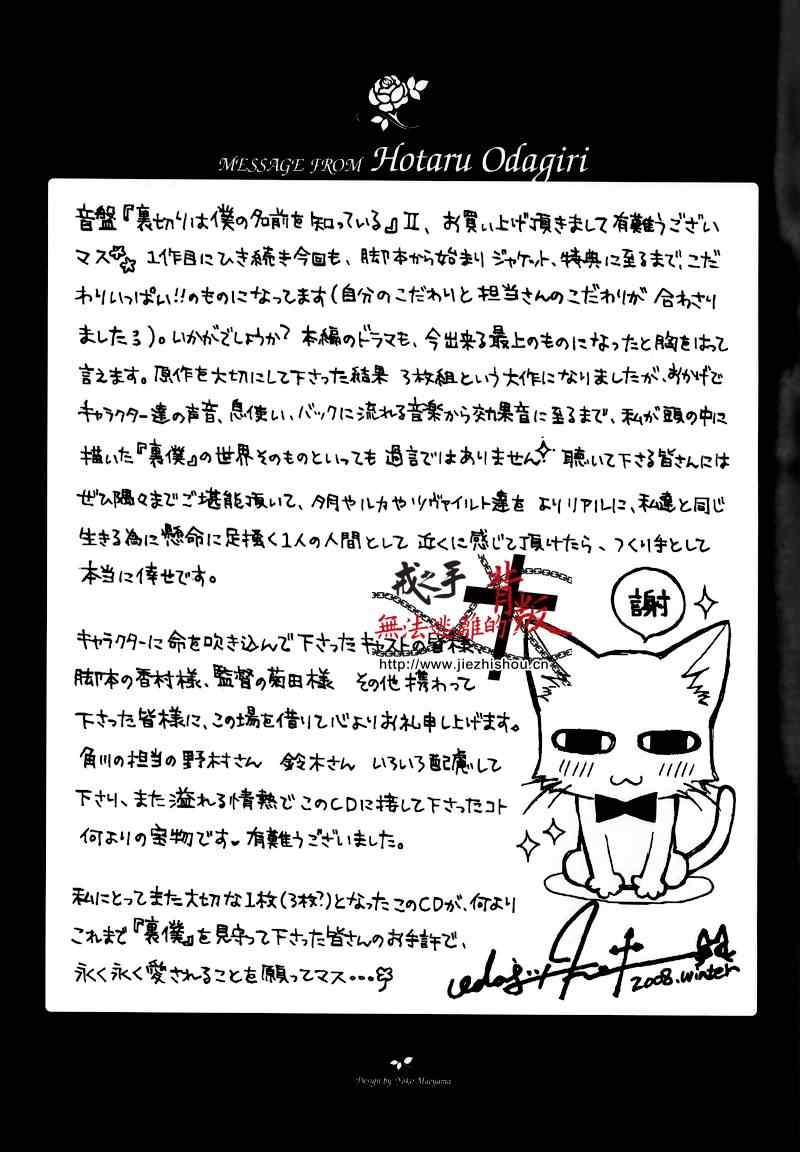 MESSAGE FROM Hotaru Odagiri
音盤『裏切りは僕の名前を知っている』Ⅱ、お買い上げ頂きまして有難うござい
マス 1作目にひき続き今回も、脚本から始まりジャケット、特典に至るまで、こだ
わりいっぱい!!のものになってます(自分のこだわりと担当さんのこだわりが合わさり
ましたろ)。いかがでしょうか? 本編のドラマも、今出来る最上のものになったと胸をはって
言えます。原作を大切にして下さった結果 3枚組という大作になりましたが、おかげで
キャラクター達の声音、息使い、バックに流れる音楽から効果音に至るまで、私が頭の中に
描いた『裏僕』の世界そのものといっても過言ではありません! 聴いて下さる皆さんには
ぜひ隅々までご堪能頂いて、夕月やルカやツヴァイルト達を よりリアルに、私達と同じ
生きる為に懸命に足掻く1人の人間として 近くに感じて頂けたら、つくり手として
本当に倖せです。
戒之手 背叛
無法逃離的
http://www.jiezhishou.cn
謝
キャラクターに命を吹き込んで下さったキャストの皆様
脚本の香村様、監督の菊田様 その他 携わって
下さった皆様に、この場を借りて心よりお礼申し上げます。
角川の担当の野村さん 鈴木さん いろいろ配慮して
下さり、また溢れる情熱でこのCDに接して下さったコト
何よりの宝物です♥有難うございました。
私にとってまた大切な1枚(3枚?)となったこのCDが、何より
これまで『裏僕』を見守って下さった皆さんのお手許で、
永く永く愛されることを願ってマス...
odagiri
2008.winter
Design by Yoko Maeyama